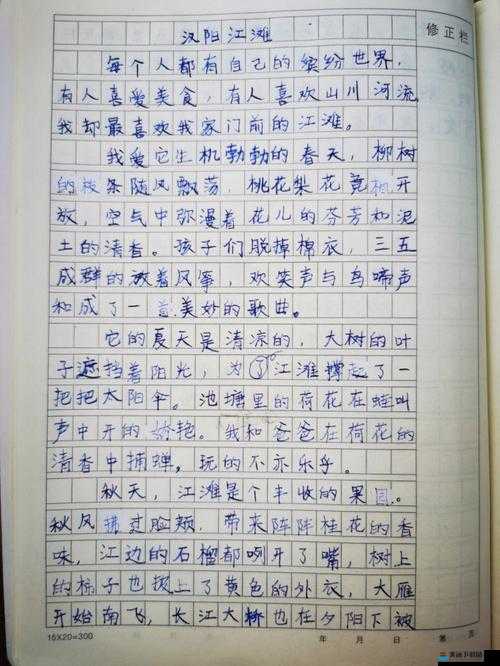 修正栏
汉阳江滩
每个人都有自己的缤纷世界，
有人喜爱美食，有人喜欢山川河流，
我却最喜欢我家门前的江滩。
我爱它生机勃勃的春天，柳树
的枝条随风飘荡，桃花梨花竞相开
放，空气中弥漫着花儿的芬芳和泥
土的清香。孩子们脱掉棉衣，三五
成群的放着风筝，欢笑声与鸟啼声
和成了一首美妙的歌曲。
它的夏天是清凉的，大树的叶
子遮挡着阳光，为了江滩撑起了一
把把太阳伞。池塘里的荷花在蛙叫
声中开的娇艳。我和爸爸在荷花的
清香中捕蝉，玩的不亦乐乎。
秋天，江滩是个丰收的果园。
秋风拂过脸颊，带来阵阵桂花的香
味，江边的石榴都咧开了嘴，树上
的柿子也披上了黄色的外衣，大雁
开始南飞，长江大桥也在夕阳下被
16X20=300 年 月 日 第 页